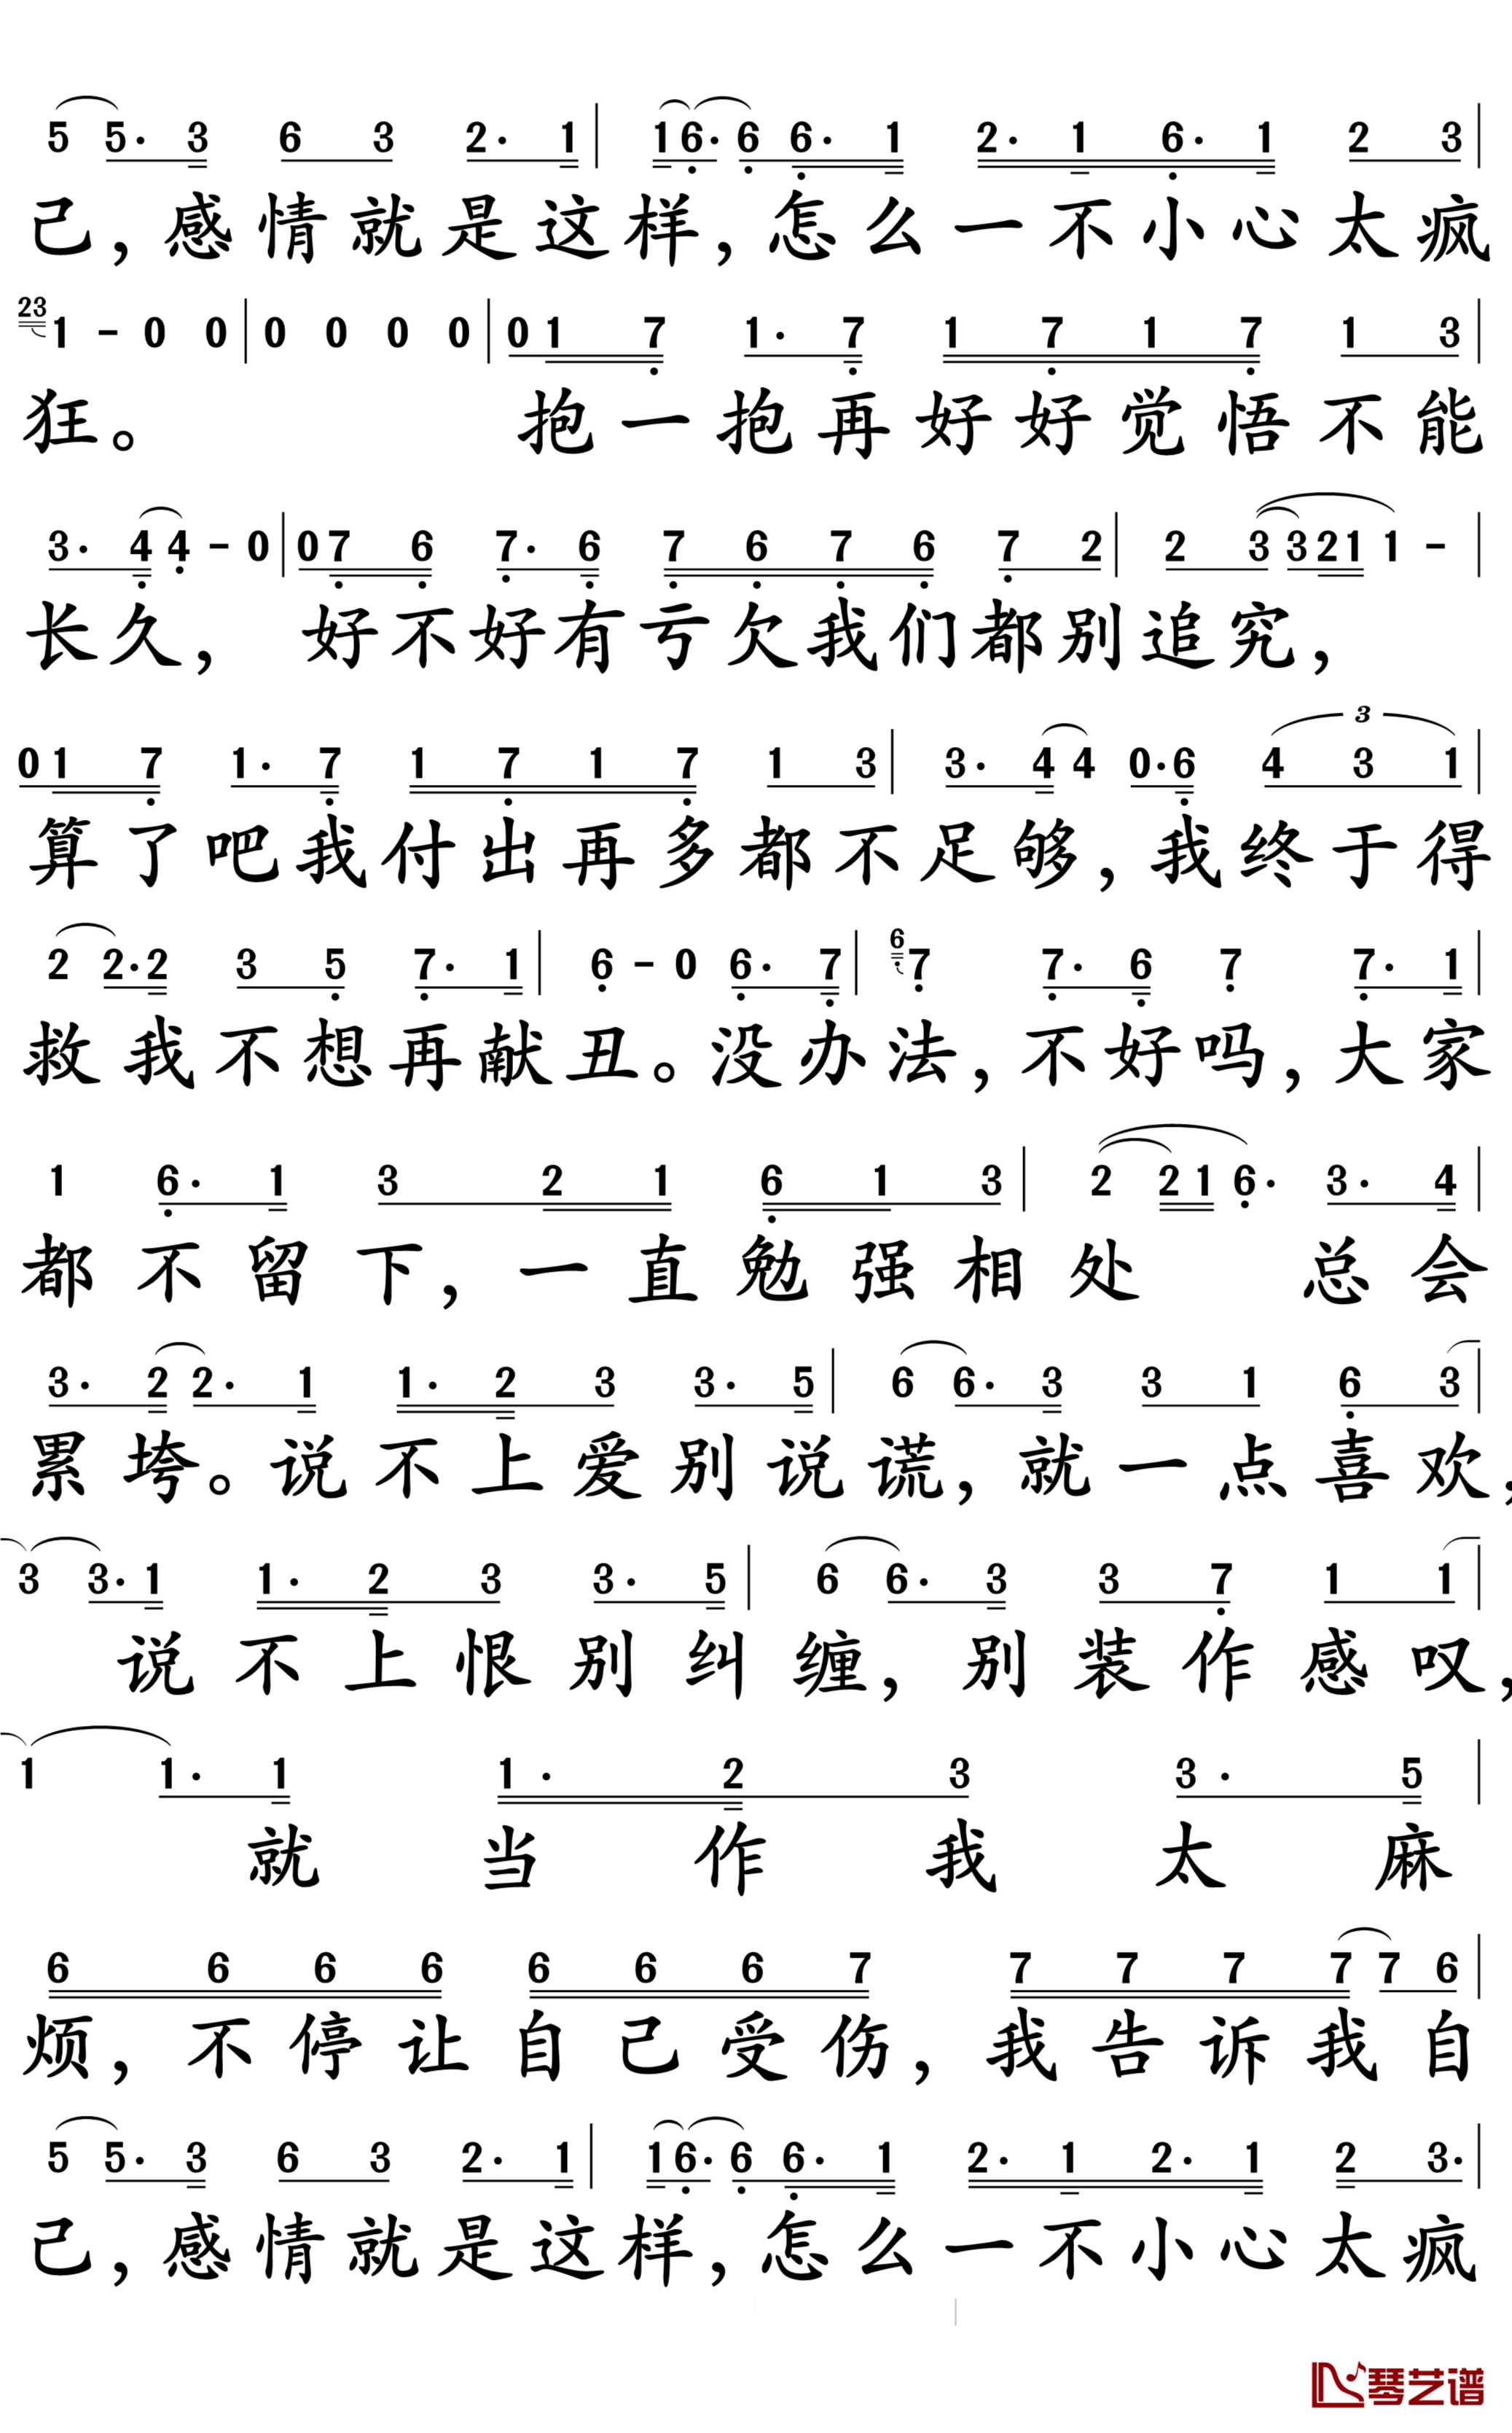 5 5· 3 6 3 2· 1 | 1 6· 6 6· 1 2· 1 6· 1 2 3 |
己，感情就是这样，怎么一不小心太疯
23 1 - 0 0 | 0 0 0 0 | 0 1 7 1· 7 1 7 1 7 1 3 |
狂。 抱一抱再好好觉悟不能
3· 4 4 - 0 | 0 7 6 7· 6 7 6 7 6 7 2 | 2 3 3 2 1 1 - |
长久， 好不好有亏欠我们都别追究，
0 1 7 1· 7 1 7 1 7 1 3 | 3· 4 4 0· 6 3 4 3 1 |
算了吧我付出再多都不足够，我终于得
2 2· 2 3 5 7· 1 | 6 - 0 6· 7 | 6 7 7· 6 7 7· 1 |
救我不想再献丑。没办法，不好吗，大家
1 6· 1 3 2 1 6 1 3 | 2 2 1 6· 3· 4 |
都不留下，一直勉强相处 总会
3· 2 2· 1 1· 2 3 3· 5 | 6 6· 3 3 1 6 3 |
累垮。说不上爱别说谎，就一点喜欢，
3 3· 1 1· 2 3 3· 5 | 6 6· 3 3 7 1 1 |
说不上恨别纠缠，别装作感叹，
1 1· 1 1· 2 3 3· 5 |
就当作我太麻
6 6 6 6 6 6 6 7 7 7 7 7 7 6 |
烦，不停让自己受伤，我告诉我自
5 5· 3 6 3 2· 1 | 1 6· 6 6· 1 2· 1 2· 1 2 3· |
己，感情就是这样，怎么一不小心太疯
琴艺谱